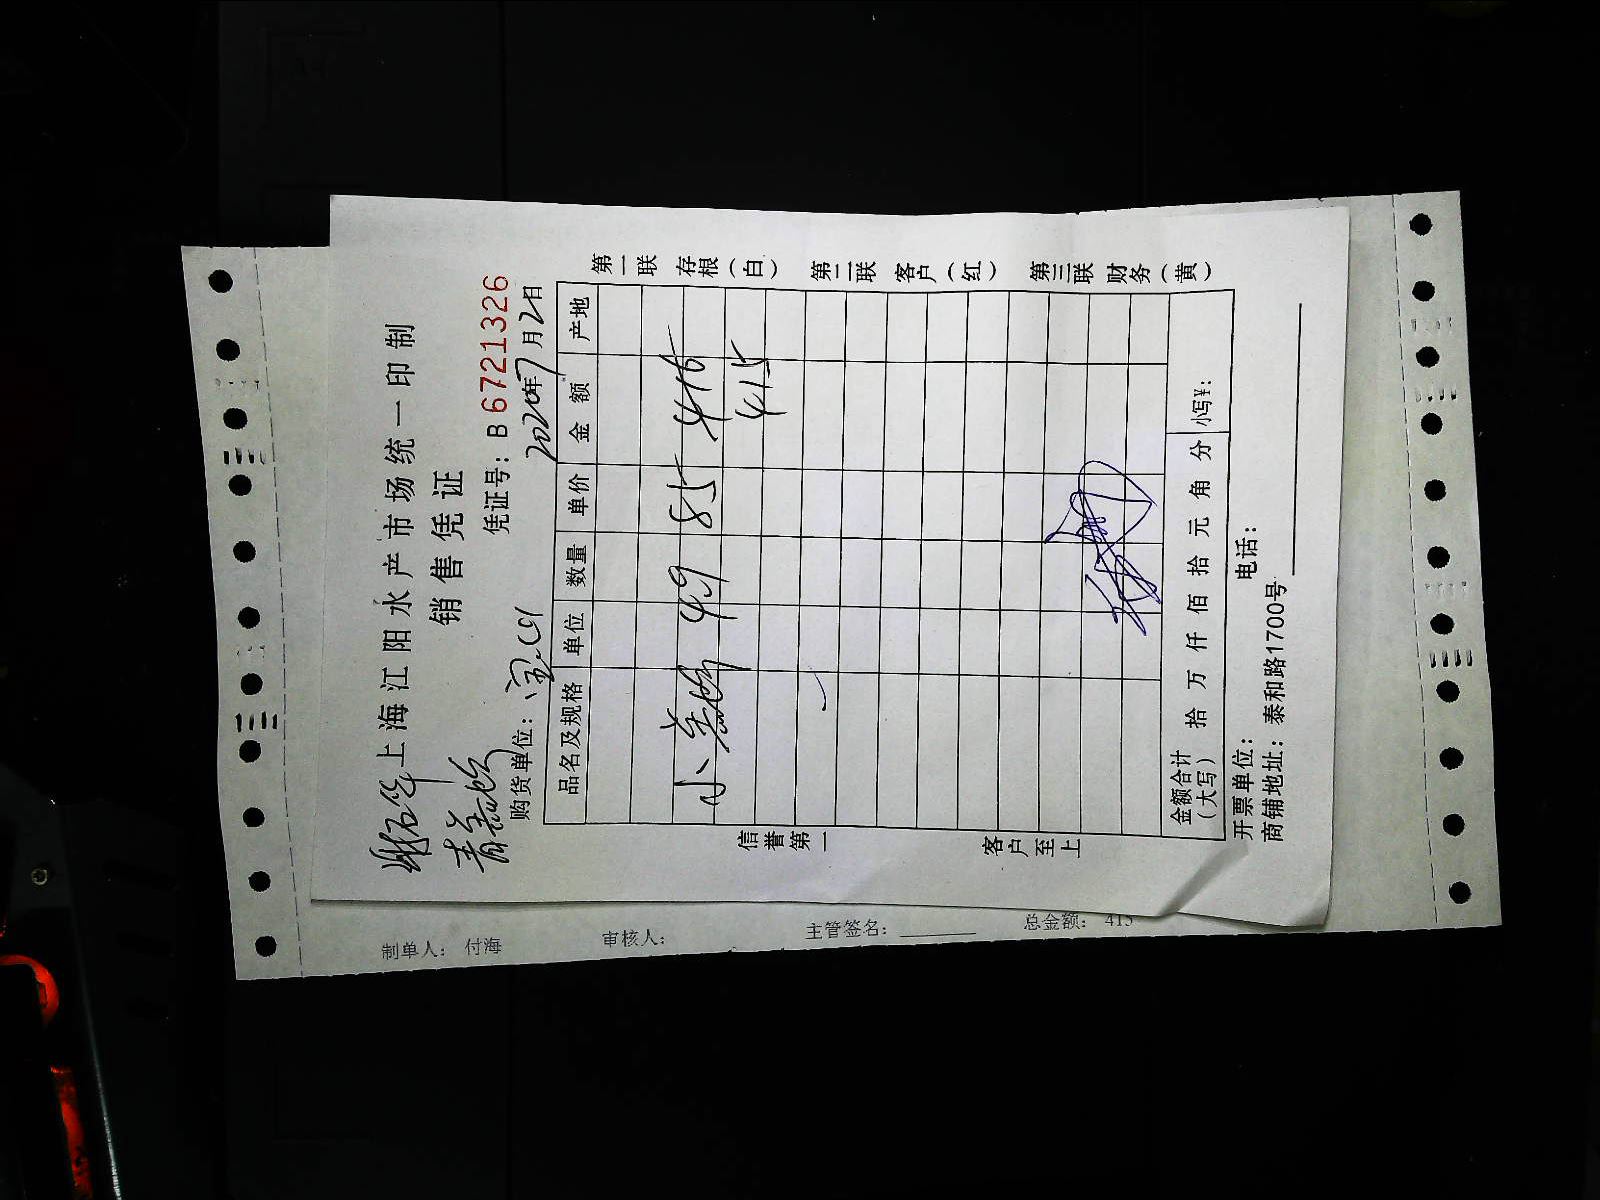 上海江阳水产市场统一印制
销售凭证
凭证号：B 6721326
购货单位：
2020年7月2日
品名及规格 单位 数量 单价 金额 产地
小 4.9 85 416
415
金额合计（大写） 拾 万 仟 佰 拾 元 角 分 小写¥：
开票单位： 电话：
商铺地址：泰和路1700号
信誉第一
客户至上
第一联 存根（白）
第二联 客户（红）
第三联 财务（黄）
制单人： 付海 审核人： 主管签名： 总金额： 415